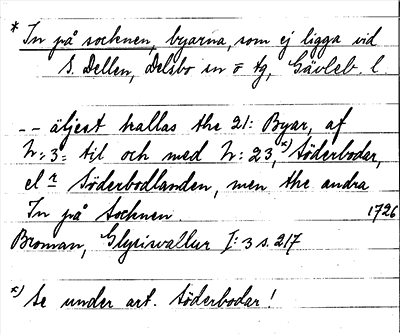 * In på socknen, byarna, som ej ligga vid
S. Dellen, Delsbo sn o tg, Gävleb. l.
-- äljest kallas the 21: Byar, af
N:3= til och med N: 23, *) Söderbodar,
el r Söderbodlanden, men the andra
In på Socknen. 1726
Broman, Glysisvallur I:3 s. 217
*) Se under art. Söderbodar!